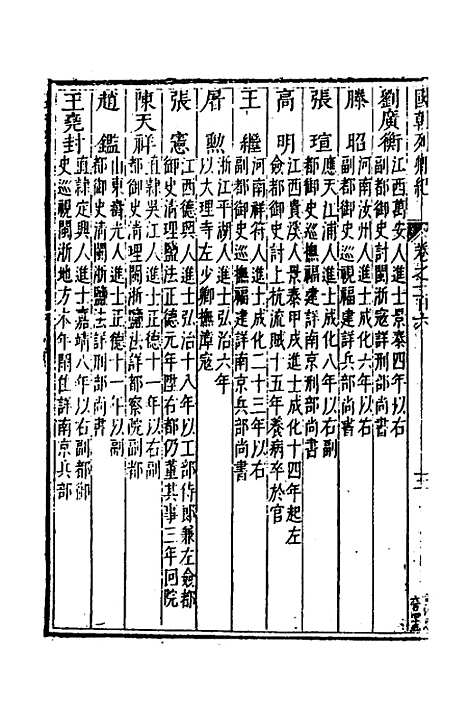 國朝列卿紀 卷之一百六 十二
劉廣衡
江西萬安人進士景泰四年以右
副都御史討閩浙寇詳刑部尚書
滕昭
河南汝州人進士成化六年以右
副都御史巡撫福建詳兵部尚書
張瑄
應天江浦人進士成化八年以右副
都御史巡撫福建詳南京刑部尚書
高明
江西貴溪人景泰甲戌進士成化十四年起左
僉都御史討上杭流賊十五年養病卒於官
王繼
河南祥符人進士成化二十三年以右
副都御史巡撫福建詳南京兵部尚書
屠勲
浙江平湖人進士弘治六年
以大理寺左少卿撫漳寇
張憲
江西德興人進士弘治十八年以工部侍郎兼左僉都
御史清理鹽法正德元年陞右都仍董其事三年回院
陳天祥
直隸吳江人進士正德十一年以右副
都御史清理閩浙鹽法詳都察院副都
趙鑑
山東壽光人進士正德十一年以副
都御史清閩浙鹽法詳刑部尚書
王堯封
直隸定興人進士嘉靖八年以右副都御
史巡視閩浙地方本年閒住詳南京兵部